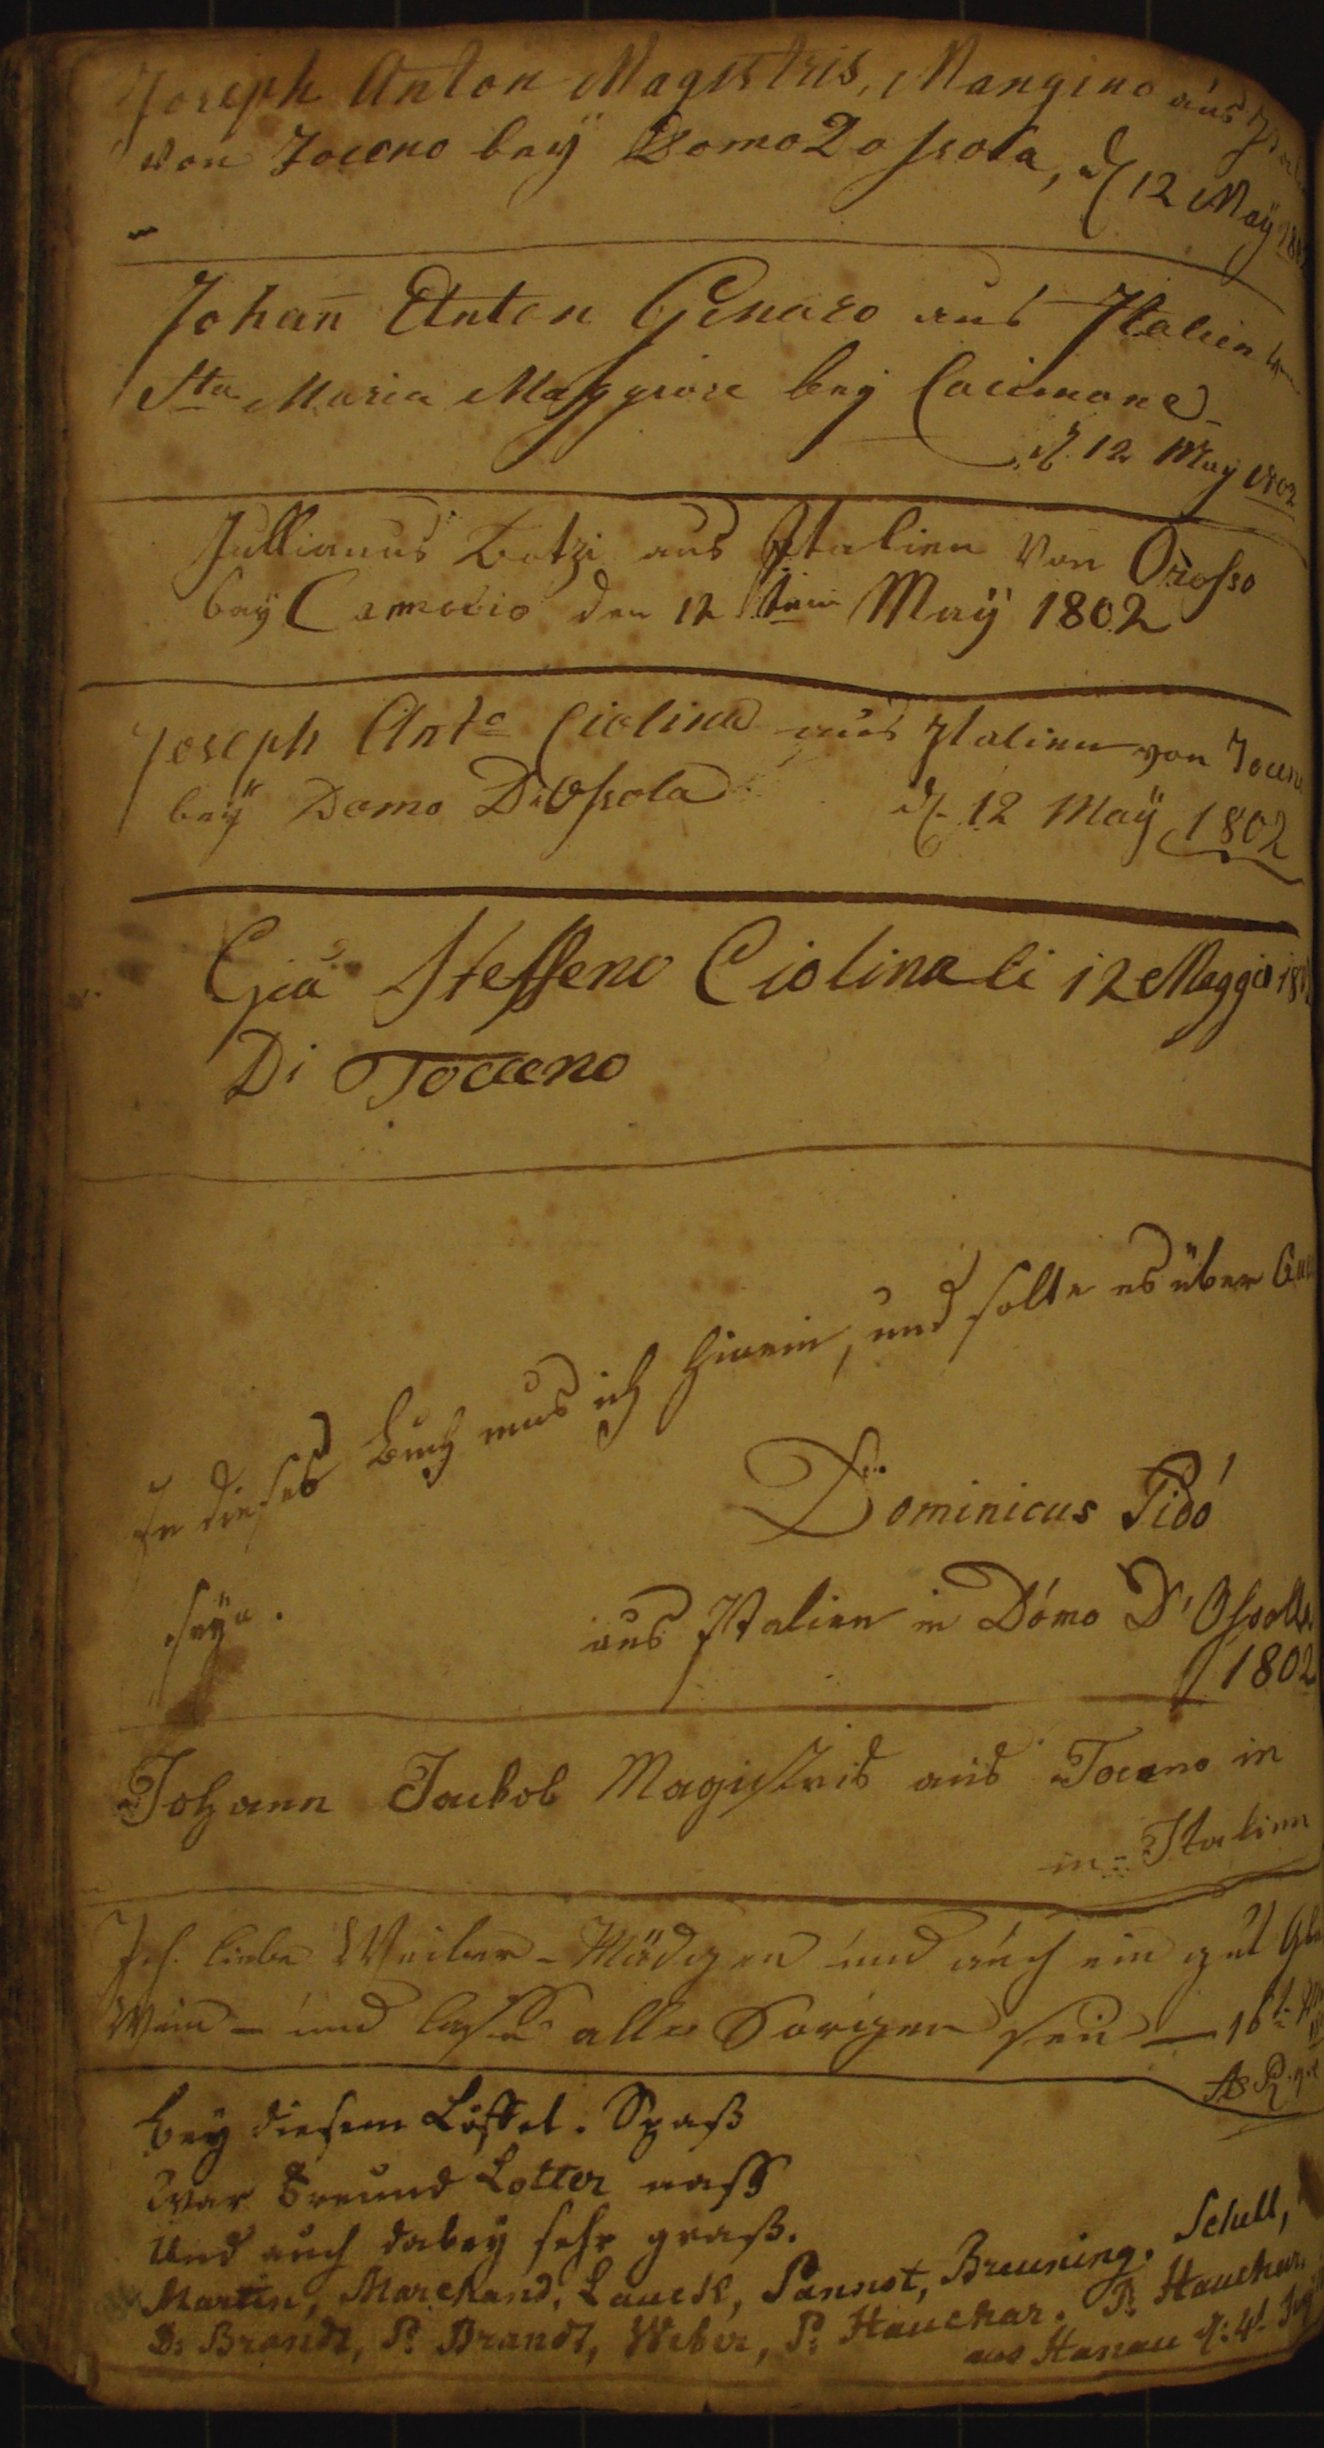 Joseph Anton Magistris, Mangino aus
von Toceno bey Domo Dossola, d 12 May
Johan̄ Anton Genaro aus Italien
Sta Maria Maggiore bey
d. 12 May 1802
Jullianus Botzi aus Italien von Orasso
bey den 12 tein May 1802
Joseph Anto Ciolina aus Italien von Tocen
bey Domo D'Ossola d. 12 May 1802
Gia Steffeno Ciolina li 12 Maggio
Di Tocceno
In dieses Buch mus ich hinein, und solte es über
seyn.
Dominicus Pidó
aus Italien in Dómo D'Ossolla
1802
Johann Jackob Magistris aus Toceno in
in Italien
Ich liebe Weiber-Mädgen und auch ein gut
Wein – und lasse alle Sorgen sein – 16t
Bey diesem Löffel. Spaß
War Freund Lotter nass
Und auch dabey sehr graß.
Martin, Marchand, Lauck, Pannot, Breuning. Schell,
D: Brandt, P: Brandt, Weber, P: Hauchar. D: Hauchar.
aus Hanau d: 4t